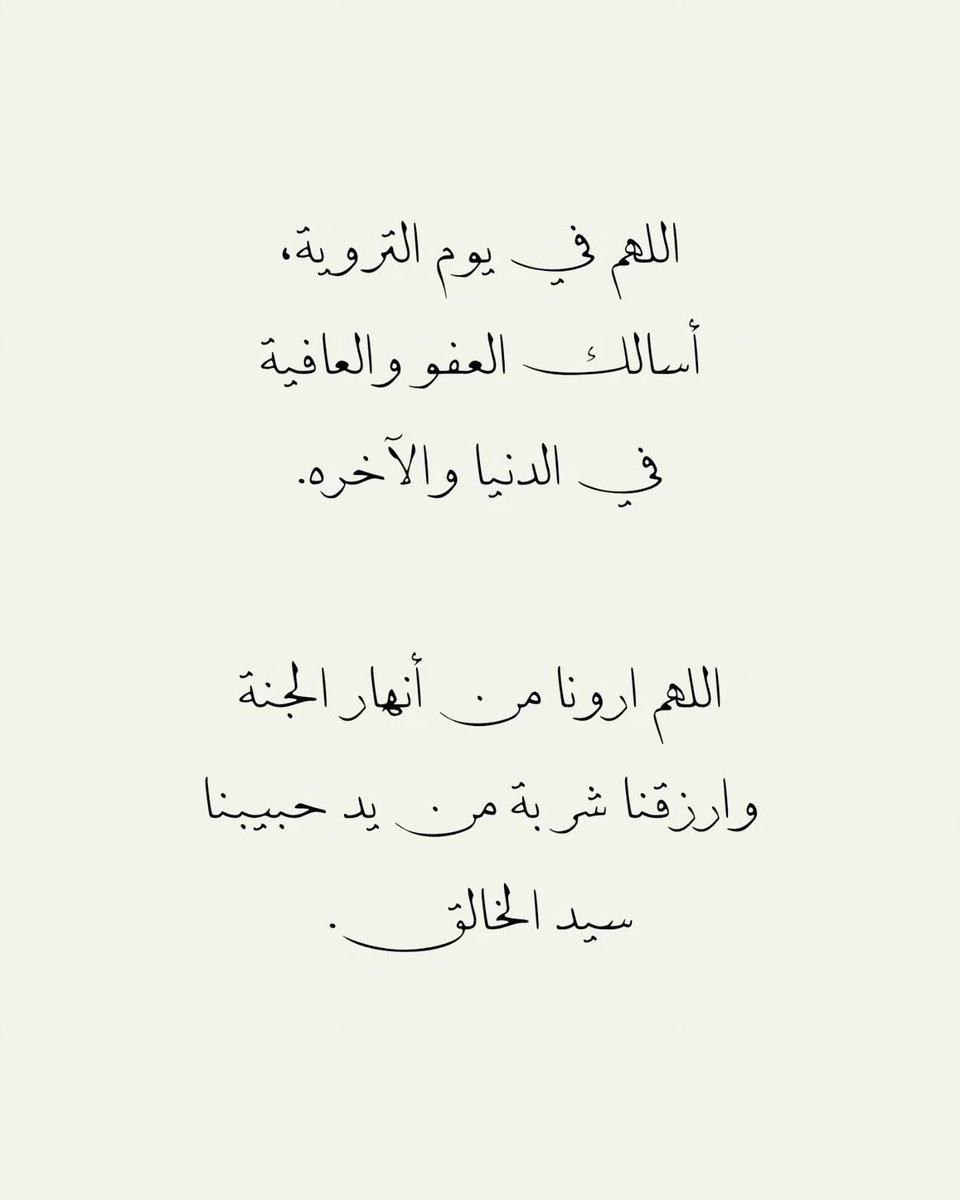 اللهم في يوم التروية،
أسالك العفو والعافية
في الدنيا والآخره.
اللهم ارونا من أنهار الجنة
وارزقنا شربة من يد حبيبنا
سيد الخالق.